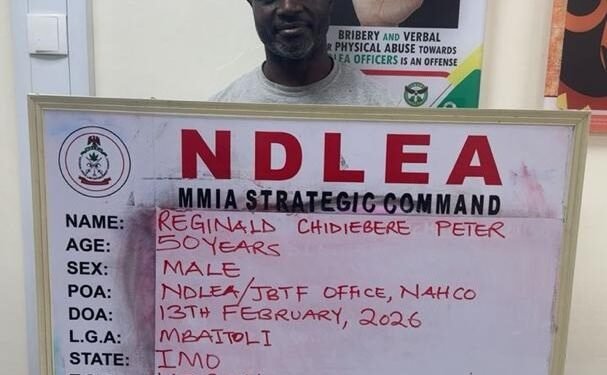 BRIBERY AND VERBAL
PHYSICAL ABUSE TOWARDS
OFFICERS IS AN OFFENSE
NDLEA
MMIA STRATEGIC COMMAND
NAME: REGINALD CHIDIEBERE PETER
AGE: 50 YEARS
SEX: MALE
POA: NDLEA/JBTF OFFICE, NAHCO
DOA: 13TH FEBRUARY, 2026
L.G.A: MBAITOLI
STATE: IMO